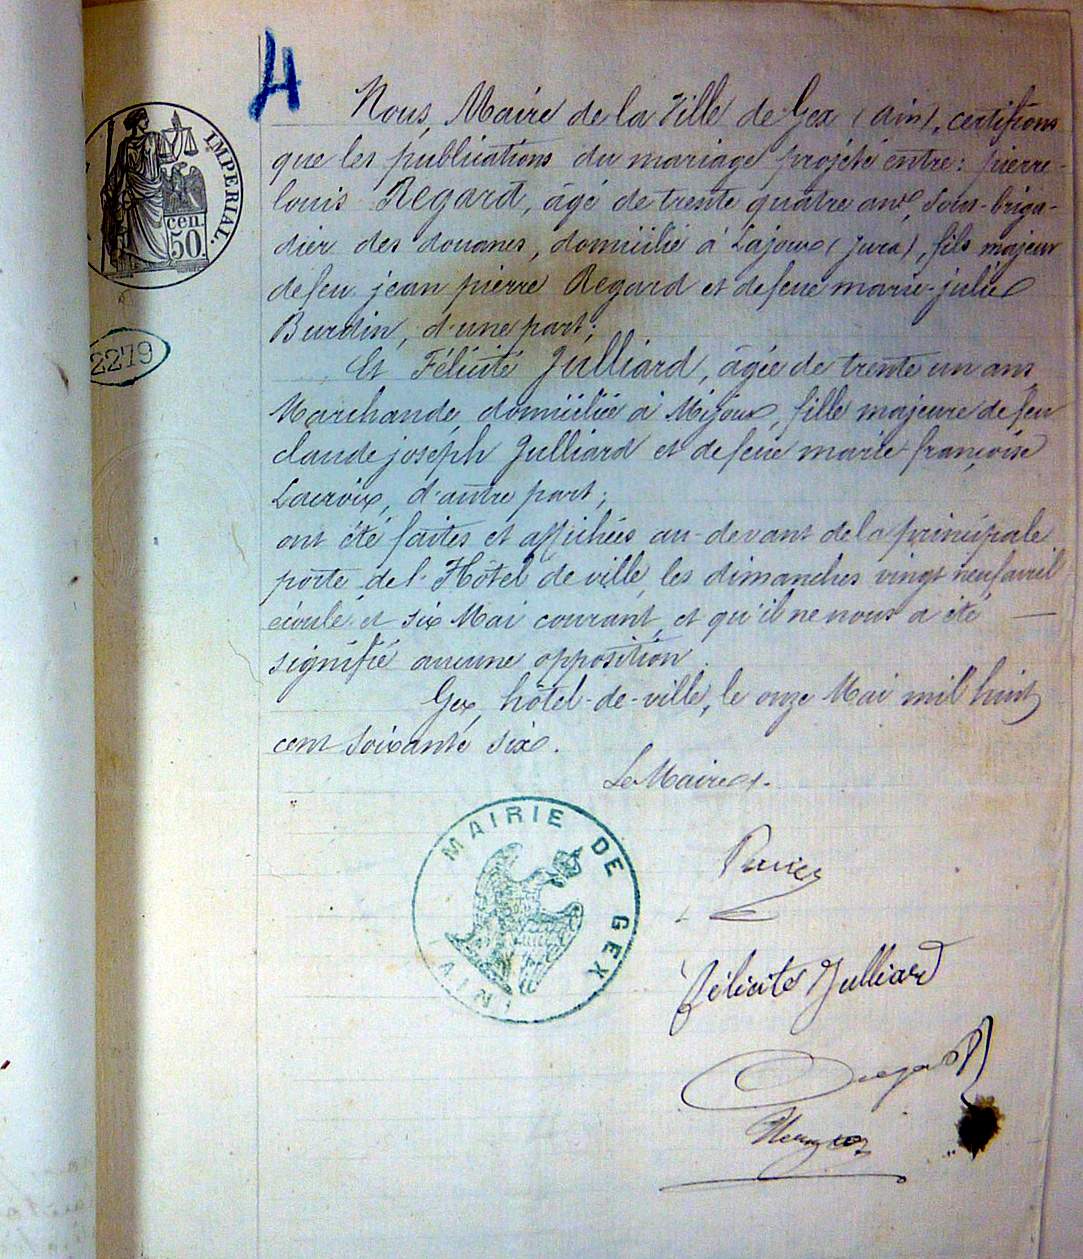 4
IMPERIAL.
cen
50
2279
Nous, Maire de la Ville de Gex (ain), certifions
que les publications du mariage projeté entre: pierre-
louis Regard, âgé de trente quatre ans, Sous-briga-
dier des douanes, domicilié à Lajoux (jura), fils majeur
de feu jean pierre Regard et de feue marie-julie
Burdin, d'une part;
Et Félicité Julliard, âgée de trente un ans,
Marchande, domiciliée à Mijoux, fille majeure de feu
claude joseph Julliard et de feue marie françoise
Lacroix, d'autre part;
ont été faites et affichées au-devant de la principale
porte de l'Hôtel de ville, les dimanches vingt neuf avril
écoulé et six Mai courant, et qu'il ne nous a été
signifié aucune opposition.
Gex, hôtel-de-ville, le onze Mai mil huit
cent soixante six.
Le Maire
MAIRIE DE GEX
(AIN)
Félicité Julliard
Regard